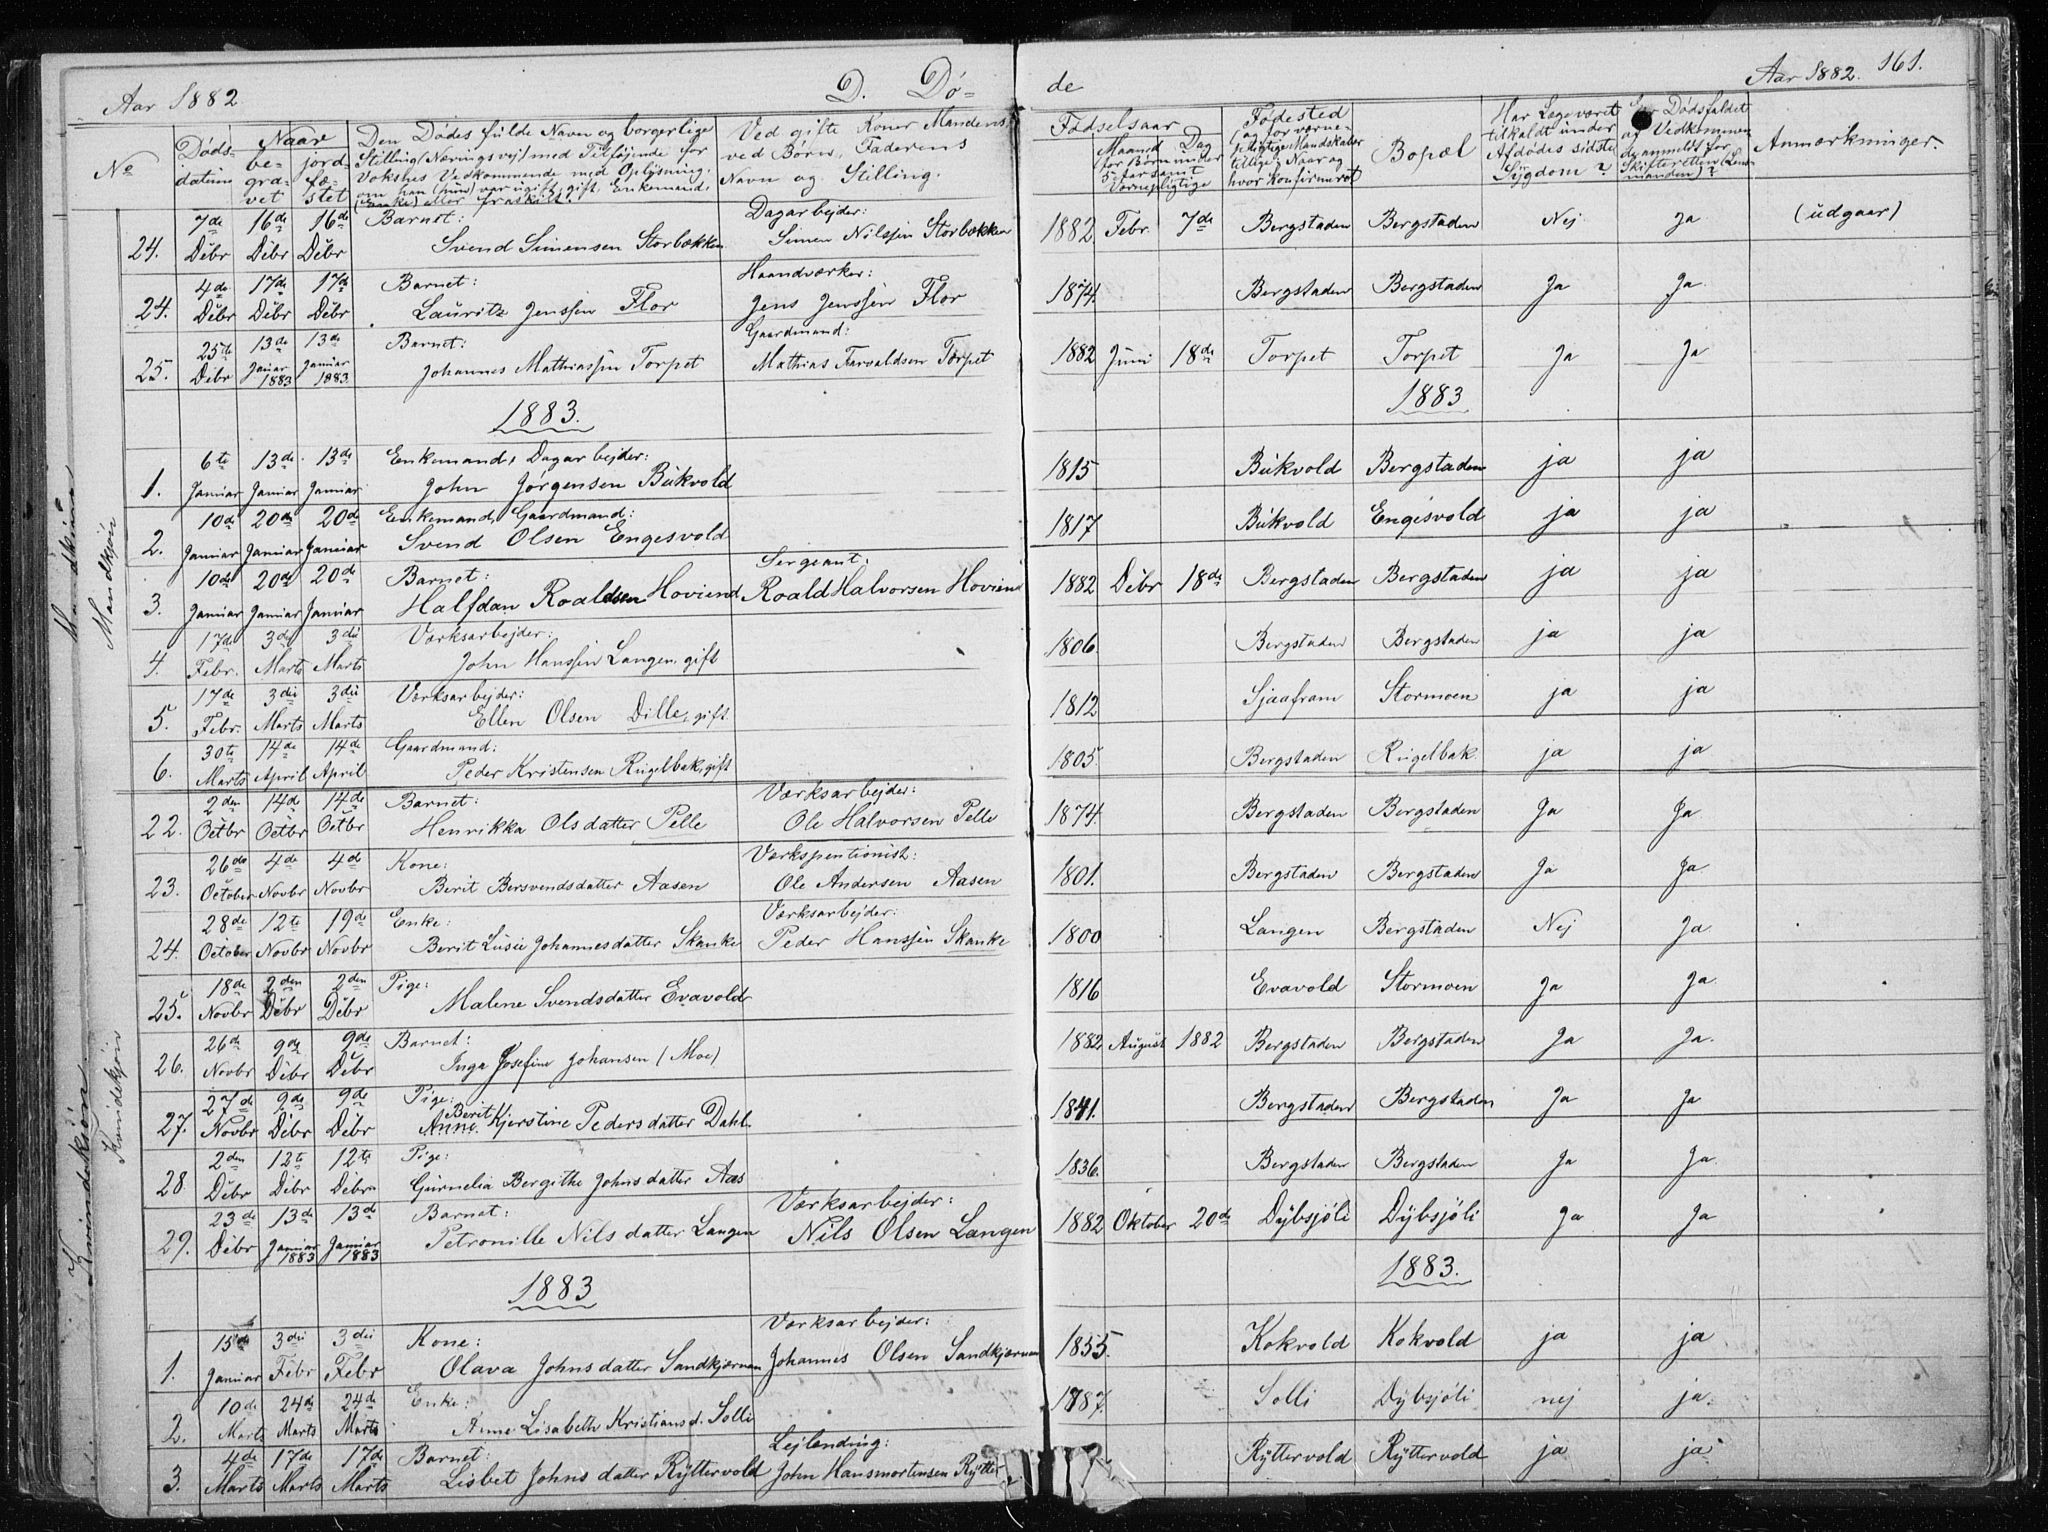 Aar 1882 D. Dø- de Aar 1882. 161.
No
Døds-datum
Naar
be-gra-vet
jord-fæ-stet
Den Dødes fulde Navn og borgerlige
Stilling (Næringsvej) med Tilføjende for
Voksnes Vedkommende med Oplysning,
om han (hun) var ugift, gift, Enkemand,
(Enke) eller fraskilt.
Ved gifte Koner Mandens,
ved Børn, Faderens
Navn og Stilling.
Fødselsaar
Maaned Dag
for Børn under
5 Aar samt
Vernepligtige
Fødested
(og for værne-
pligtige Mandskaber
tillige Naar og
hvor konfirmeret
Bopæl
Har Læge været
tilkaldt under
Afdødes sidste
Sygdom?
Er Dødsfaldet
af Vedkommen-
de anmeldt for
Skifteretten (Lens-
manden)?
Anmærkninger
Mandkjön
Mandkjön
24. 7de Debr 16de Debr 16de Debr Barnet: Svend Simensen Storbækken Dagarbejder: Simen Nilssen Storbækken 1882 Febr. 7de Bergstaden Bergstaden Nej Ja (udgaar)
24. 4de Debr 17de Debr 17de Debr Barnet: Lauritz Jenssen Flor Haandværker: Jens Jenssen Flor 1874. Bergstaden Bergstaden Ja Ja.
25. 25de Debr 13de Januar 1883 13de Januar 1883. Barnet: Johannes Mathiassen Torpet Gaardmand: Mathias Tarvaldsen Torpet 1882 Juni 18de Torpet Torpet Ja Ja
1883. 1883
1. 6te Januar 13de Januar 13de Januar Enkemand, Dagarbejder: John Jørgensen Bukvold 1815 Bukvold Bergstaden ja ja
2. 10de Januar 20de Januar 20de Januar Enkemand, Gaardmand: Svend Olsen Engesvold 1817 Bukvold Engesvold ja ja
3. 10de Januar 20de Januar 20de Januar Barnet: Halfdan Roaldsen Hoviend Sergeant: Roald Halvorsen Hoviend 1882 Debr 18de Bergstaden Bergstaden ja ja
4. 17de Febr. 3die Marts 3die Marts Værksarbejder: John Hanssen Langen, gift 1806. Bergstaden Bergstaden ja ja
5. 17de Febr. 3die Marts 3die Marts Værksarbejder: Ellen Olsen Dille, gift. 1812 Sjaafram Stormoen ja ja
6. 30te Marts 14de April 14de April Gaardmand: Peder Kristensen Rugelbak, gift 1805. Bergstaden Rugelbak. ja ja
Kvindekjön
Kvindekjön
22. 2den Octbr 14de Octbr 14de Octbr Barnet: Henrikka Olsdatter Pelle Værksarbejder: Ole Halvorsen Pelle 1874. Bergstaden Bergstaden Ja Ja.
23. 26de October 4de Novbr 4de Novbr Kone: Berit Bersvendsdatter Aasen Værkspentionist: Ole Andersen Aasen 1801. Bergstaden Bergstaden Ja Ja.
24. 28de October 12te Novbr 19de Novbr Enke: Berit Lusie Johannesdatter Skanke Værksarbejder: Peder Hanssen Skanke 1800 Langen Bergstaden Nej Ja.
25. 18de Novbr 2den Debr 2den Debr Pige: Malene Svendsdatter Evavold 1816 Evavold Stormoen Ja Ja.
26. 26de Novbr 9de Debr 9de Debr Barnet: Inga Josefine Johansen (Moe) 1882 August 1882 Bergstaden Bergstaden Ja Ja.
27. 27de Novbr 9de Debr 9de Debr Pige: Berit Anne Kjerstine Pedersdatter Dahl. 1841. Bergstaden Bergstaden Ja Ja
28. 2den Debr 12te Debr 12te Debr. Pige: Gurnelia Bergithe Johnsdatter Aas 1836. Bergstaden Bergstaden Ja Ja.
29. 23de Debr 13de Januar 1883 13de Januar 1883 Barnet: Petronille Nilsdatter Langen Værksarbejder: Nils Olsen Langen 1882 Oktober 20de Dybsjöli Dybsjöli Ja Ja
1883 1883.
1. 15de Januar 3die Febr 3die Febr Kone: Olava Johnsdatter Sandkjernan Værksarbejder: Johannes Olsen Sandkjernan 1855. Kokvold Kokvold ja ja
2. 10de Marts 24de Marts 24de Marts Enke: Anne Lisabeth Kristiansd. Solli 1787. Solli Dybsjöli nej ja.
3. 4de Marts 17de Marts 17de Marts Barnet: Lisbet Johnsdatter Ryttervold Lejlending: John Hansmortensen Rytter Ryttervold Ryttervold ja ja